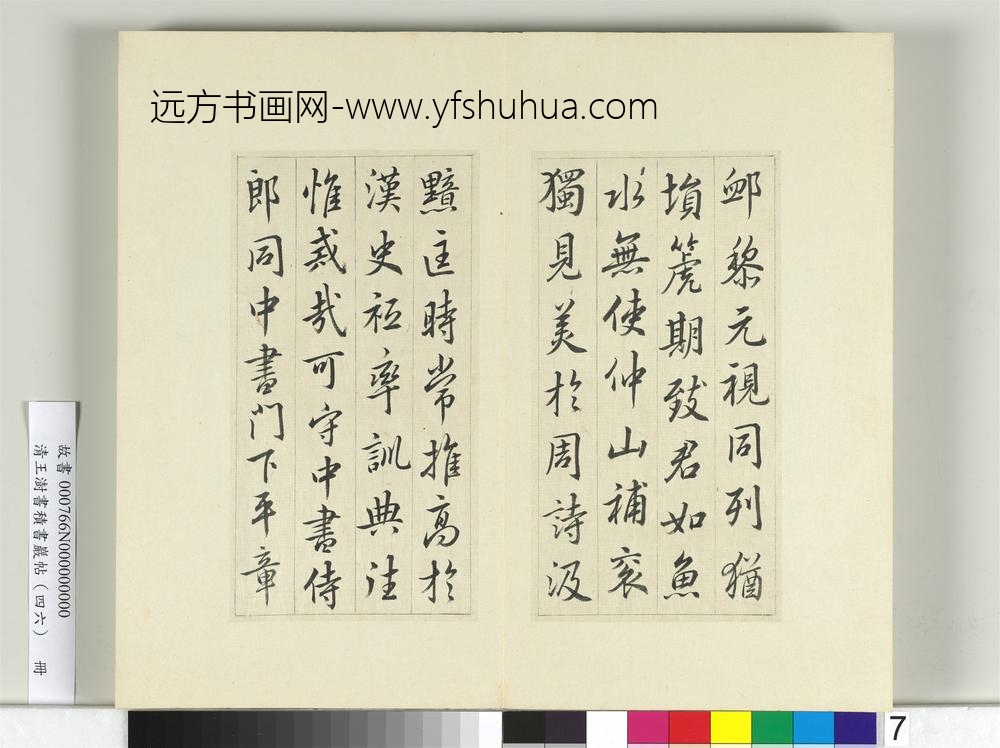 远方书画网-www.yfshuhua.com
卹黎元視同列猶
埙篪期致君如魚
水無使仲山補衮
獨見美於周詩汲
黯匡時常推高於
漢史祗率訓典往
惟戒哉可守中書侍
郎同中書門下平章
故書 000766N000000000
清王澍書積書巖帖（四六） 冊
7